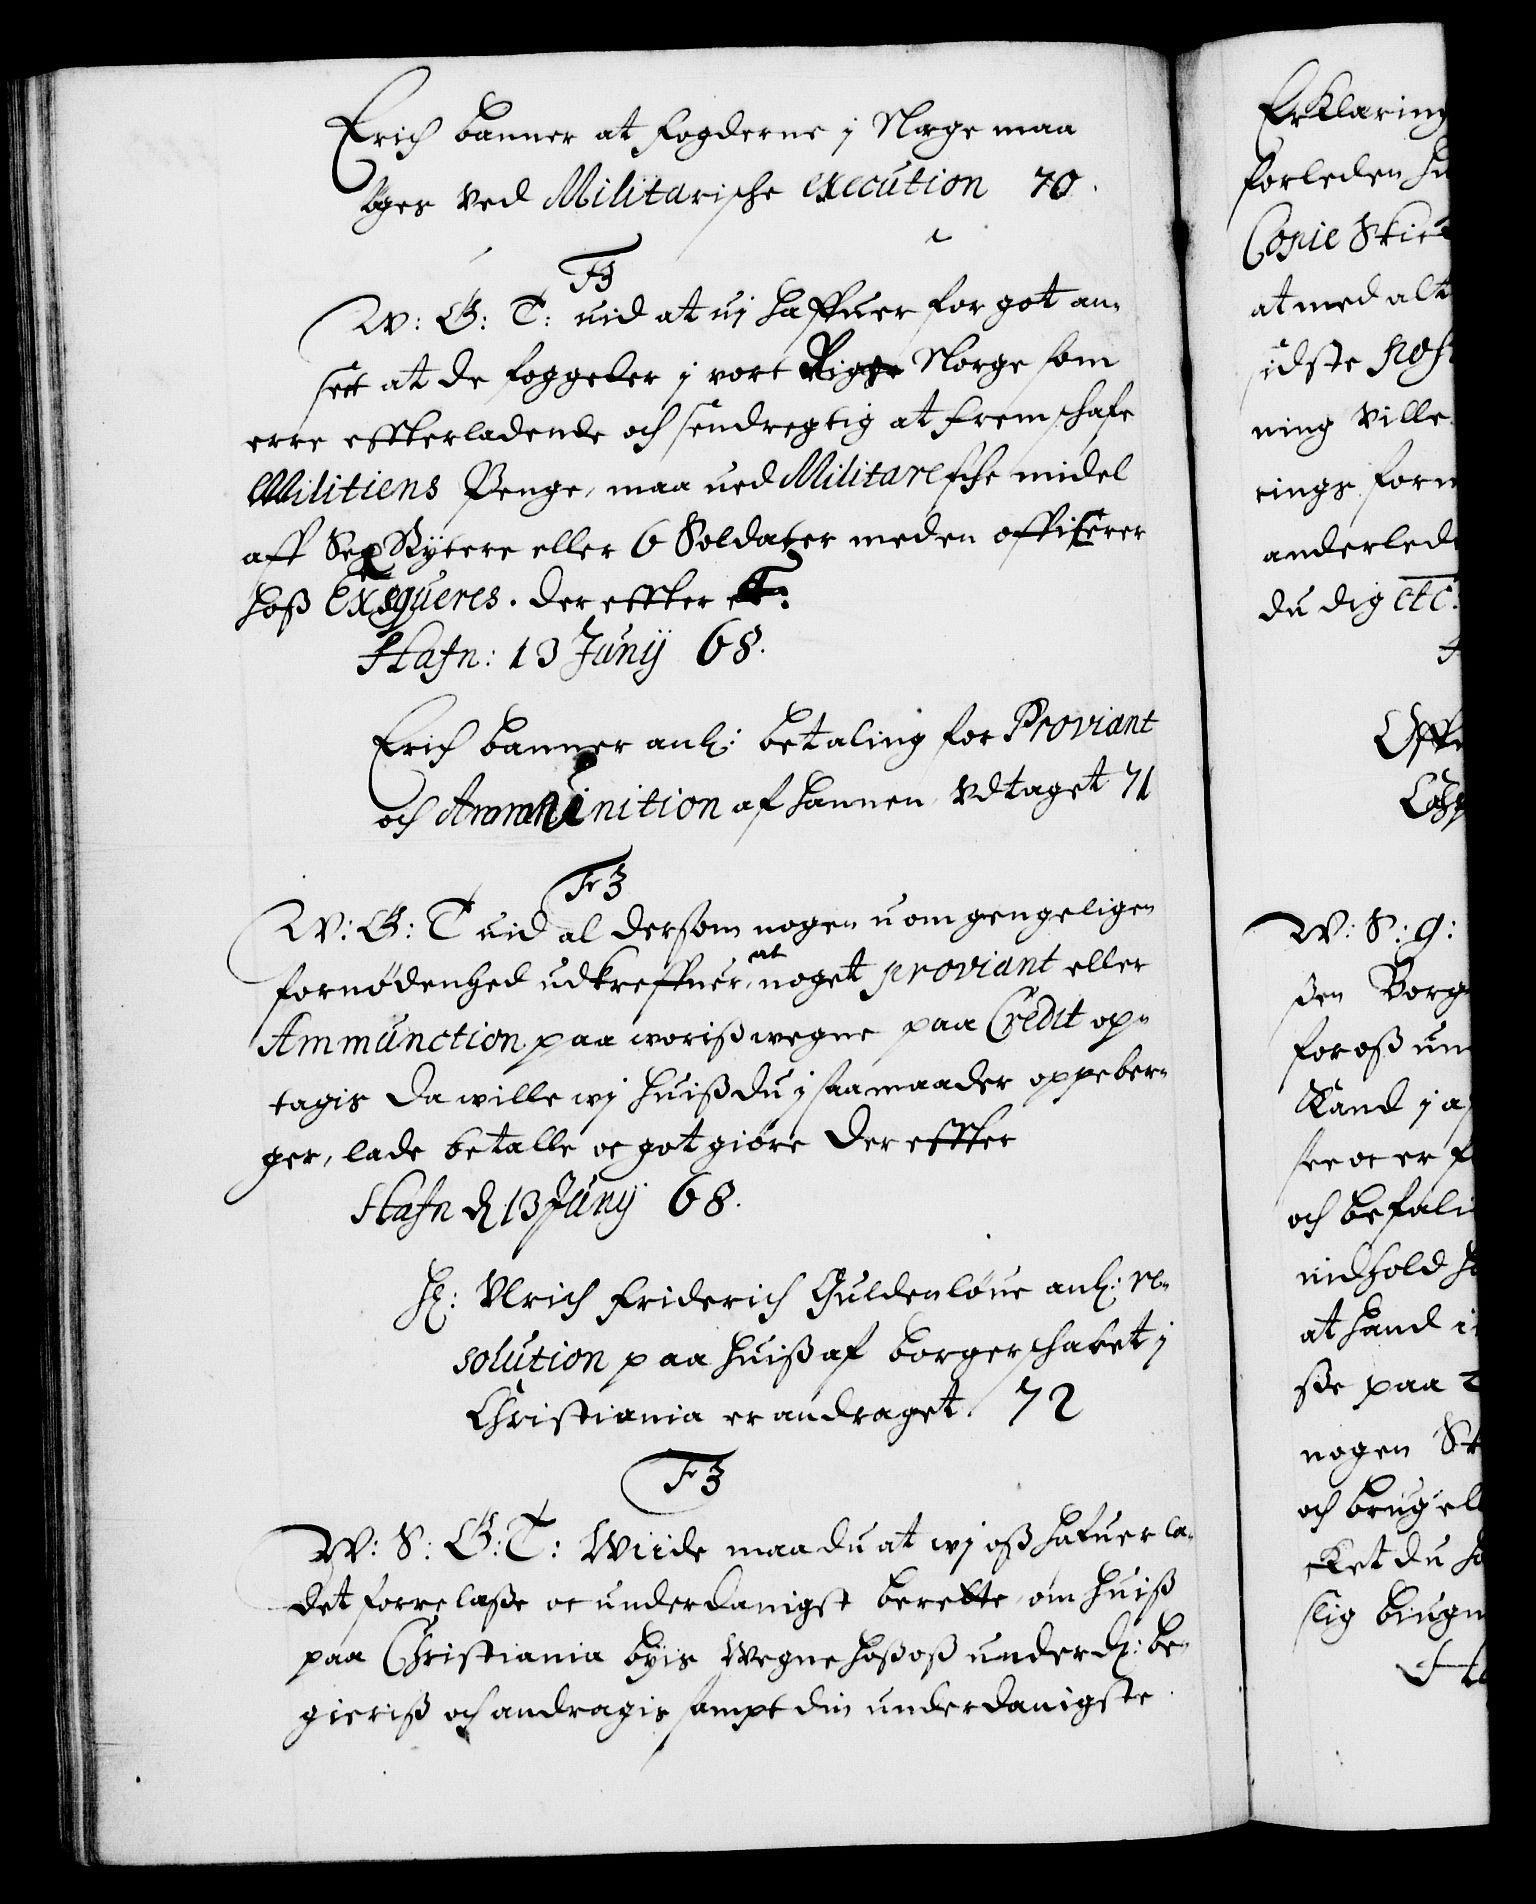 Erich banner at fogderne j Norge maa
søges Ved Militarische execution 70.
F3
W: G: T: uid at uj haffuer for got an-
seet at de foggeder j vort Rige Norge som
erre effterladende och sendregtig at fremschafe
Militiens Penge, maa ued Militaresche midel
aff Sex Rytere eller 6 Soldater meden officerer
hoß Exsqueres. der effter etc:
Hafn: 13 Junij 68.
Erich banner anl: betaling for Proviant
och Ammunition af hannem Vdtaget 71
Fr3
W: G: T uid al dersom nogen uomgengeligen
fornødenhed udkreffuer, at noget proviant eller
Ammunction paa voriß wegne paa Credit op-
tagis da wille wj huiß du j saa maader oppeber-
ger, lade betalle oc got giøre Der effter
Hafn d 13 Junij 68.
H: Vlrich Friderich Guldenløue anl: re-
solution paa huiß af borgerschabet j
Christiania er andraget. 72
F3
W: S: G: T: Wiide maa du at wj oß hafuer la-
det forrelaße oc underdanigst berette, om huiß
paa Christiania byis Wegne hoß oß underd: be-
gieriß och andragis sampt din underdanigste
Erklaring
forleden
Copie
at med alt
sidste
ning Ville
rings
du dig etc:
W: S: G:
for oß
Kand j
och befali
indhold
at hand
ße paa
nogen
och brug
du